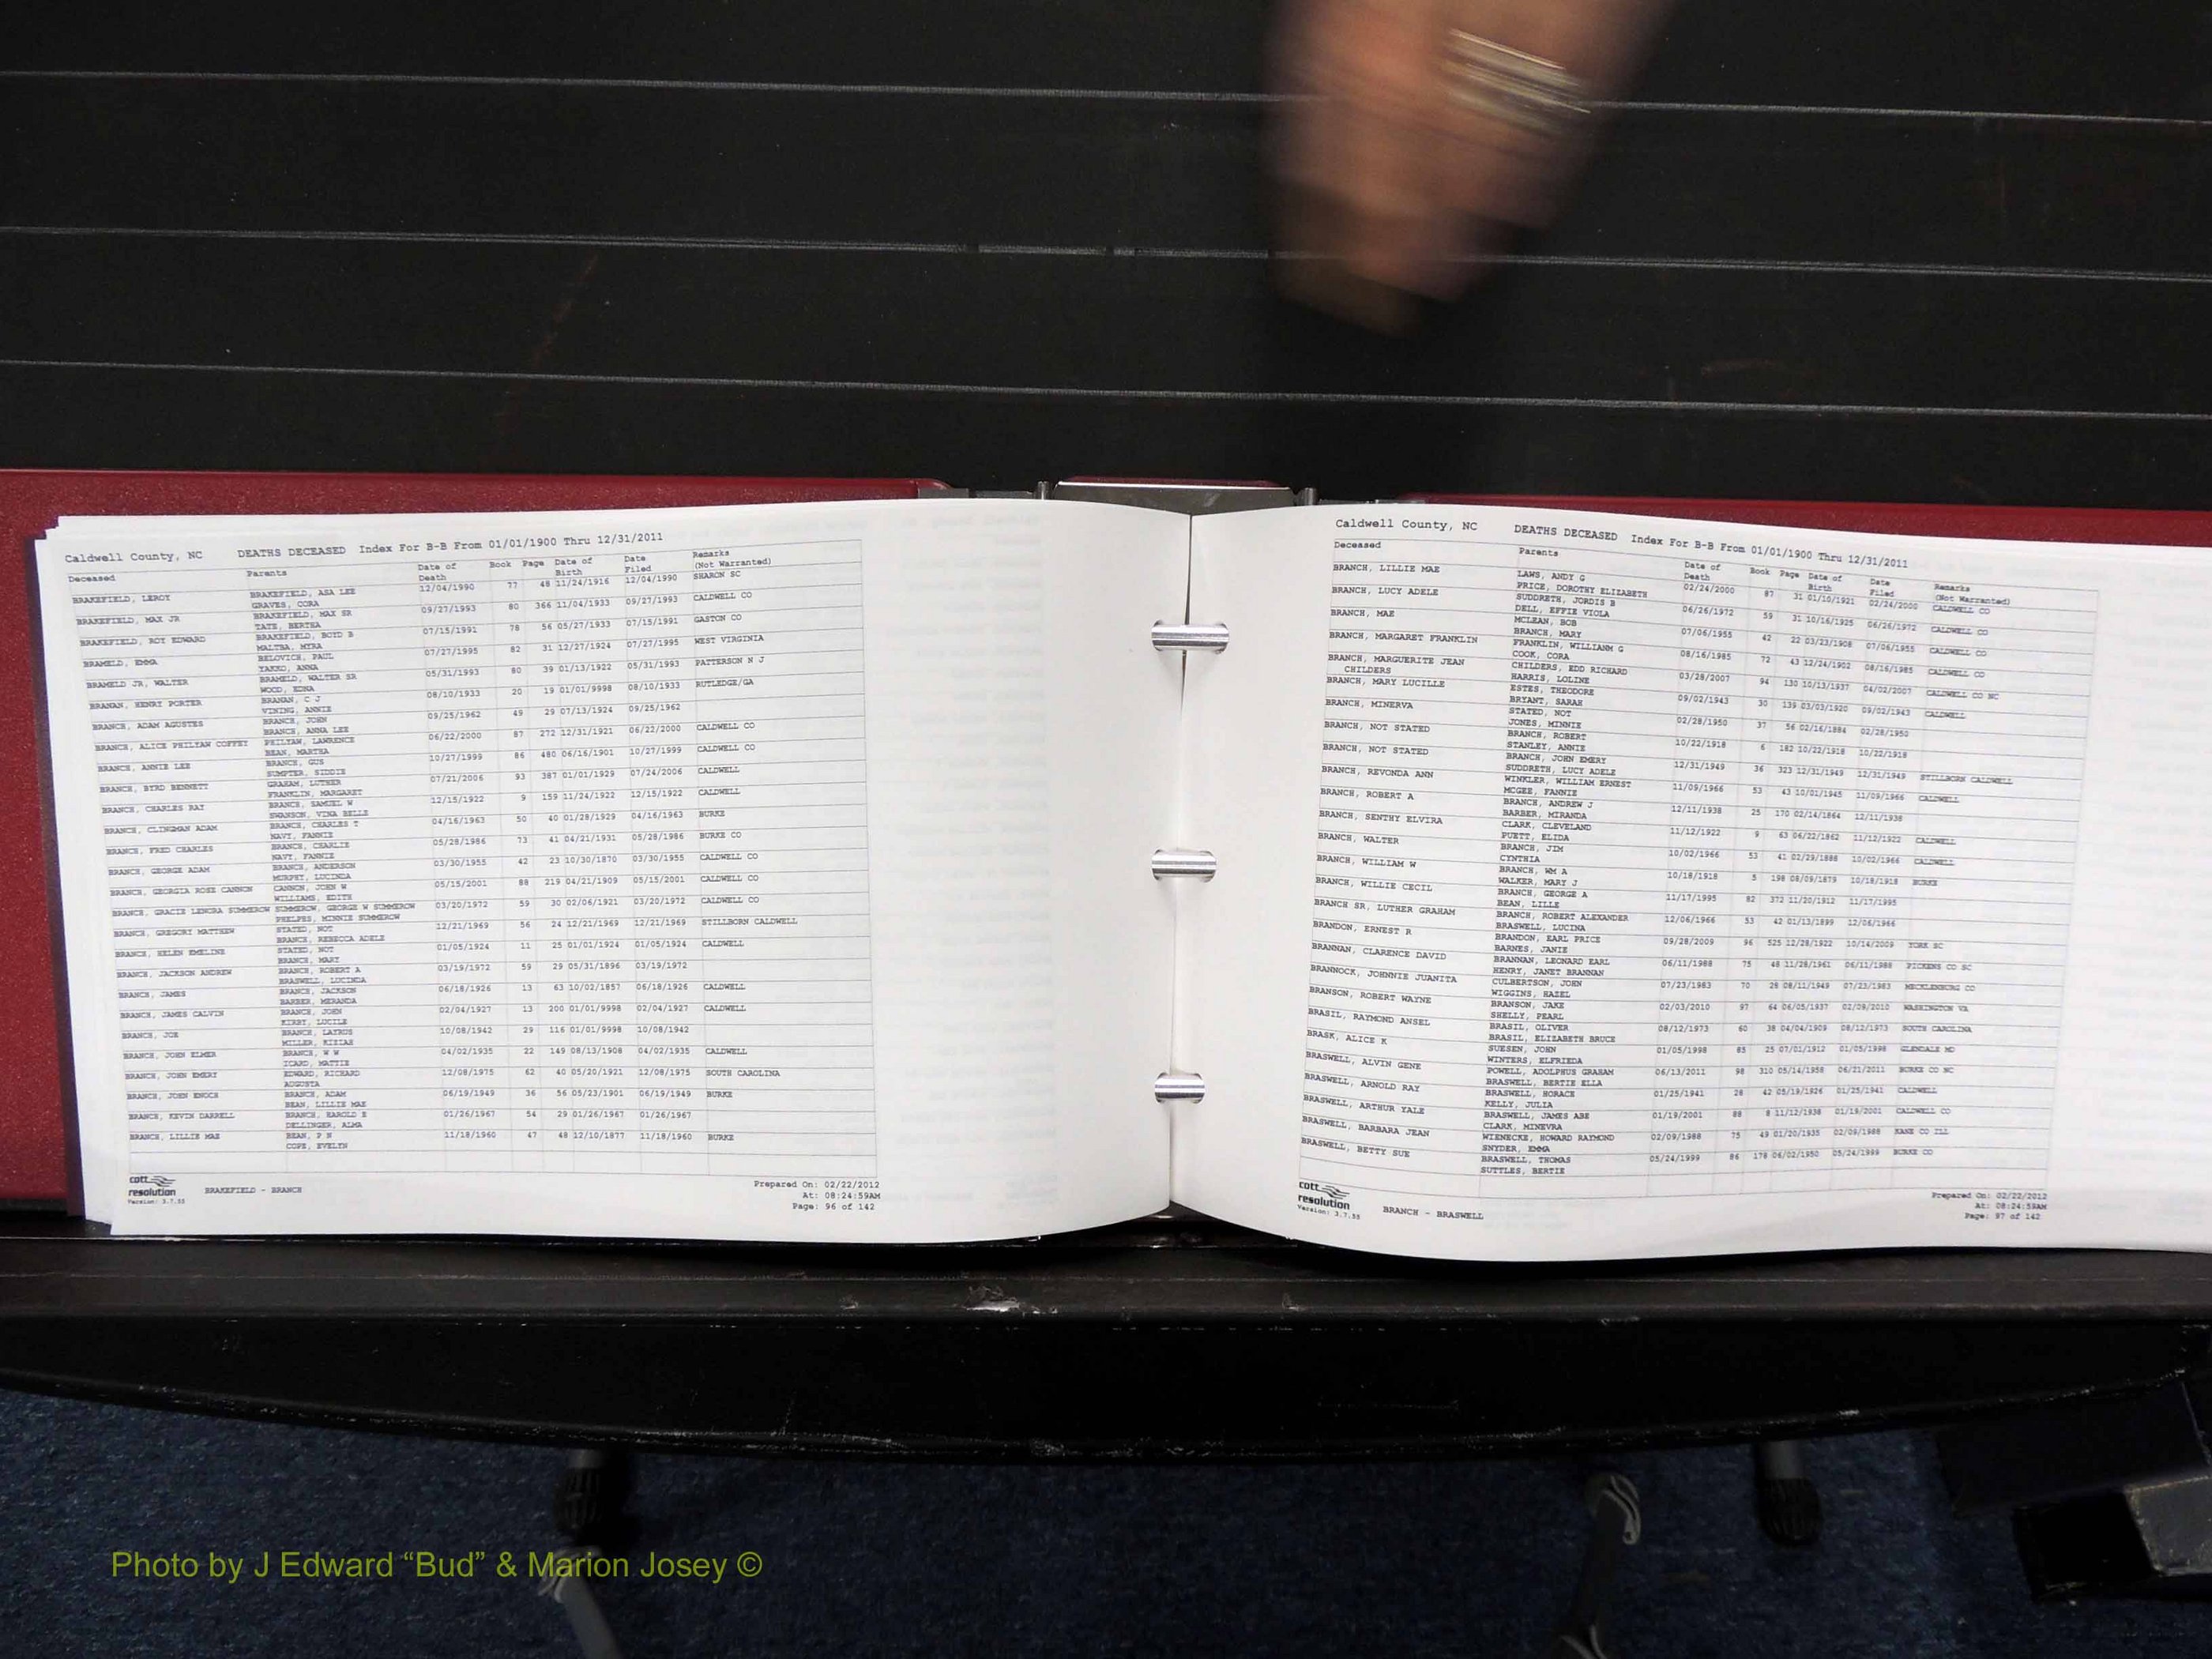 Caldwell County, NC DEATHS DECEASED Index For B-B From 01/01/1900 Thru 12/31/2011
Deceased Parents Date of Death Book Page Date of Birth Date Filed Remarks (Not Warranted)
BRAKEFIELD, LEROY BRAKEFIELD, ASA LEE 12/04/1990 77 48 11/24/1916 12/04/1990 SHARON SC
GRAVES, CORA
BRAKEFIELD, MAX JR BRAKEFIELD, MAX SR 09/27/1993 80 366 11/04/1933 09/27/1993 CALDWELL CO
TATE, BERTHA
BRAKEFIELD, ROY EDWARD BRAKEFIELD, BOYD B 07/15/1991 78 56 05/27/1933 07/15/1991 GASTON CO
MALTBA, MYRA
BRAMELD, EMMA BELOVICH, PAUL 07/27/1995 82 31 12/27/1924 07/27/1995 WEST VIRGINIA
YAKKO, ANNA
BRAMELD JR, WALTER BRAMELD, WALTER SR 05/31/1993 80 39 01/13/1922 05/31/1993 PATTERSON N J
WOOD, EDNA
BRANAN, HENRY PORTER BRANAN, C J 08/10/1933 20 19 01/01/9998 08/10/1933 RUTLEDGE/GA
VINING, ANNIE
BRANCH, ADAM AGUSTES BRANCH, JOHN 09/25/1962 49 29 07/13/1924 09/25/1962
BRANCH, ANNA LEE
BRANCH, ALICE PHILYAW COFFEY PHILYAW, LAWRENCE 06/22/2000 87 272 12/31/1921 06/22/2000 CALDWELL CO
BEAN, MARTHA
BRANCH, ANNIE LEE BRANCH, GUS 10/27/1999 86 480 06/16/1901 10/27/1999 CALDWELL CO
SUMPTER, SIDDIE
BRANCH, BYRD BENNETT GRAHAM, LUTHER 07/21/2006 93 387 01/01/1929 07/24/2006 CALDWELL
FRANKLIN, MARGARET
BRANCH, CHARLES RAY BRANCH, SAMUEL W 12/15/1922 9 159 11/24/1922 12/15/1922 CALDWELL
SWANSON, VINA BELLE
BRANCH, CLINGMAN ADAM BRANCH, CHARLES T 04/16/1963 50 40 01/28/1929 04/16/1963 BURKE
NAVY, FANNIE
BRANCH, FRED CHARLES BRANCH, CHARLIE 05/28/1986 73 41 04/21/1931 05/28/1986 BURKE CO
NAVY, FANNIE
BRANCH, GEORGE ADAM BRANCH, ANDERSON 03/30/1955 42 23 10/30/1870 03/30/1955 CALDWELL CO
MURPHY, LUCINDA
BRANCH, GEORGIA ROSE CANNON CANNON, JOHN W 05/15/2001 88 219 04/21/1909 05/15/2001 CALDWELL CO
WILLIAMS, EDITH
BRANCH, GRACIE LENORA SUMMEROW SUMMEROW, GEORGE W SUMMEROW 03/20/1972 59 30 02/06/1921 03/20/1972 CALDWELL CO
PHELPES, MINNIE SUMMEROW
BRANCH, GREGORY MATTHEW STATED, NOT 12/21/1969 56 24 12/21/1969 12/21/1969 STILLBORN CALDWELL
BRANCH, REBECCA ADELE
BRANCH, HELEN EMELINE STATED, NOT 01/05/1924 11 25 01/01/1924 01/05/1924 CALDWELL
BRANCH, MARY
BRANCH, JACKSON ANDREW BRANCH, ROBERT A 03/19/1972 59 29 05/31/1896 03/19/1972
BRASWELL, LUCINDA
BRANCH, JAMES BRANCH, JACKSON 06/18/1926 13 63 10/02/1857 06/18/1926 CALDWELL
BARBER, MERANDA
BRANCH, JAMES CALVIN BRANCH, JOHN 02/04/1927 13 200 01/01/9998 02/04/1927 CALDWELL
KIRBY, LUCILE
BRANCH, JOE BRANCH, LAYRUS 10/08/1942 29 116 01/01/9998 10/08/1942
MILLER, KIZIAH
BRANCH, JOHN ELMER BRANCH, W W 04/02/1935 22 149 08/13/1908 04/02/1935 CALDWELL
ICARD, MATTIE
BRANCH, JOHN EMERY EDWARD, RICHARD 12/08/1975 62 40 05/20/1921 12/08/1975 SOUTH CAROLINA
AUGUSTA
BRANCH, JOHN ENOCH BRANCH, ADAM 06/19/1949 36 56 05/23/1901 06/19/1949 BURKE
BEAN, LILLIE MAE
BRANCH, KEVIN DARRELL BRANCH, HAROLD E 01/26/1967 54 29 01/26/1967 01/26/1967
DELLINGER, ALMA
BRANCH, LILLIE MAE BEAN, P N 11/18/1960 47 48 12/10/1877 11/18/1960 BURKE
COPE, EVELYN
cott resolution
Version: 3.7.55
BRAKEFIELD - BRANCH
Prepared On: 02/22/2012
At: 08:24:59AM
Page: 96 of 142
Caldwell County, NC DEATHS DECEASED Index For B-B From 01/01/1900 Thru 12/31/2011
Deceased Parents Date of Death Book Page Date of Birth Date Filed Remarks (Not Warranted)
BRANCH, LILLIE MAE LAWS, ANDY G 02/24/2000 87 31 01/10/1921 02/24/2000 CALDWELL CO
PRICE, DOROTHY ELIZABETH
BRANCH, LUCY ADELE SUDDRETH, JORDIS B 06/26/1972 59 31 10/16/1925 06/26/1972 CALDWELL CO
DELL, EFFIE VIOLA
BRANCH, MAE MCLEAN, BOB 07/06/1955 42 22 03/23/1908 07/06/1955 CALDWELL CO
BRANCH, MARY
BRANCH, MARGARET FRANKLIN FRANKLIN, WILLIANM G 08/16/1985 72 43 12/24/1902 08/16/1985 CALDWELL CO
COOK, CORA
BRANCH, MARGUERITE JEAN CHILDERS, EDD RICHARD 03/28/2007 94 130 10/13/1937 04/02/2007 CALDWELL CO NC
CHILDERS HARRIS, LOLINE
BRANCH, MARY LUCILLE ESTES, THEODORE 09/02/1943 30 139 03/03/1920 09/02/1943 CALDWELL
BRYANT, SARAH
BRANCH, MINERVA STATED, NOT 02/28/1950 37 56 02/16/1884 02/28/1950
JONES, MINNIE
BRANCH, NOT STATED BRANCH, ROBERT 10/22/1918 6 182 10/22/1918 10/22/1918
STANLEY, ANNIE
BRANCH, NOT STATED BRANCH, JOHN EMERY 12/31/1949 36 323 12/31/1949 12/31/1949 STILLBORN CALDWELL
SUDDRETH, LUCY ADELE
BRANCH, REVONDA ANN WINKLER, WILLIAM ERNEST 11/09/1966 53 43 10/01/1945 11/09/1966 CALDWELL
MCGEE, FANNIE
BRANCH, ROBERT A BRANCH, ANDREW J 12/11/1938 25 170 02/14/1864 12/11/1938
BARBER, MIRANDA
BRANCH, SENTHY ELVIRA CLARK, CLEVELAND 11/12/1922 9 63 06/22/1862 11/12/1922 CALDWELL
PUETT, ELIDA
BRANCH, WALTER BRANCH, JIM 10/02/1966 53 41 02/29/1888 10/02/1966 CALDWELL
CYNTHIA
BRANCH, WILLIAM W BRANCH, WM A 10/18/1918 5 198 08/09/1879 10/18/1918 BURKE
WALKER, MARY J
BRANCH, WILLIE CECIL BRANCH, GEORGE A 11/17/1995 82 372 11/20/1912 11/17/1995
BEAN, LILLE
BRANCH SR, LUTHER GRAHAM BRANCH, ROBERT ALEXANDER 12/06/1966 53 42 01/13/1899 12/06/1966
BRASWELL, LUCINA
BRANDON, ERNEST R BRANDON, EARL PRICE 09/28/2009 96 525 12/28/1922 10/14/2009 YORK SC
BARNES, JANIE
BRANNAN, CLARENCE DAVID BRANNAN, LEONARD EARL 06/11/1988 75 48 11/28/1961 06/11/1988 PICKENS CO SC
HENRY, JANET BRANNAN
BRANNOCK, JOHNNIE JUANITA CULBERTSON, JOHN 07/23/1983 70 28 08/11/1949 07/23/1983 MECKLENBURG CO
WIGGINS, HAZEL
BRANSON, ROBERT WAYNE BRANSON, JAKE 02/03/2010 97 64 06/05/1937 02/09/2010 WASHINGTON VA
SHELLY, PEARL
BRASIL, RAYMOND ANSEL BRASIL, OLIVER 08/12/1973 60 38 04/04/1909 08/12/1973 SOUTH CAROLINA
BRASIL, ELIZABETH BRUCE
BRASK, ALICE K SUESEN, JOHN 01/05/1998 85 25 07/01/1912 01/05/1998 GLENDALE MD
WINTERS, ELFRIEDA
BRASWELL, ALVIN GENE POWELL, ADOLPHUS GRAHAM 06/13/2011 98 310 05/14/1958 06/21/2011 BURKE CO NC
BRASWELL, BERTIE ELLA
BRASWELL, ARNOLD RAY BRASWELL, HORACE 01/25/1941 28 42 05/19/1926 01/25/1941 CALDWELL
KELLY, JULIA
BRASWELL, ARTHUR YALE BRASWELL, JAMES ABE 01/19/2001 88 8 11/12/1938 01/19/2001 CALDWELL CO
CLARK, MINEVRA
BRASWELL, BARBARA JEAN WIENECKE, HOWARD RAYMOND 02/09/1988 75 49 01/20/1935 02/09/1988 KANE CO ILL
SNYDER, EMMA
BRASWELL, BETTY SUE BRASWELL, THOMAS 05/24/1999 86 178 06/02/1950 05/24/1999 BURKE CO
SUTTLES, BERTIE
cott resolution
Version: 3.7.55
BRANCH - BRASWELL
Prepared On: 02/22/2012
At: 08:24:59AM
Page: 97 of 142
Photo by J Edward “Bud” & Marion Josey ©